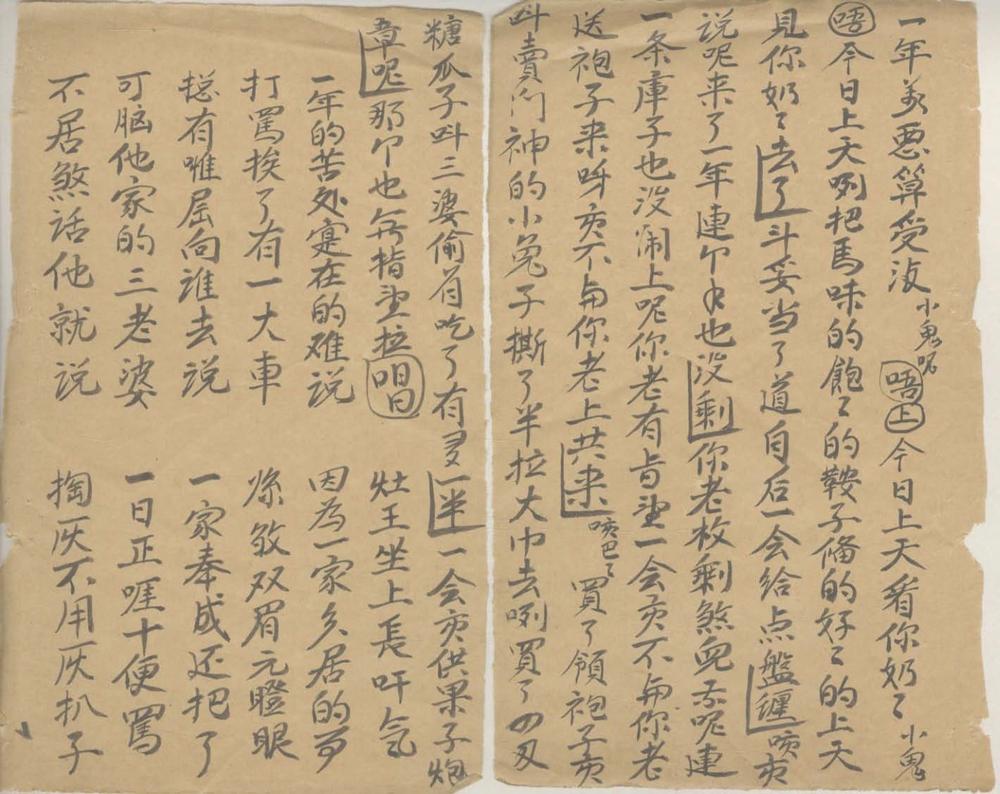 一年美恶算受没 小鬼呢 唔上 今日上天看你奶〻 小鬼
唔 今日上天咧把馬味的飽〻的鞍子俻的好〻的上天
見你奶〻去了斗妥当了道自后一会给点盤纏咳亥
说呢来了一年連个也没剩你老枚剩煞呢连
一条庫子也没闹上呢你老有旨望一会亥不甬你老
送袍子来呀亥不甬你老上共来咳巴了 買了領袍子亥
叫賣门神的小兔子撕了半拉大巾去咧買了四刄
糖瓜子叫三婆偷着吃了有多一半一会亥供果子炮
章呢那个也旨望拉 唱曰 灶王坐上長吁气
一年的苦处寔在的难说 因為一家久居的
打罵挨了有一大車 双眉元瞪眼
搃有唯屈向谁去说 一家奉成还把了
可脑他家的三老婆 一日正啀十便罵
不居煞话他就说 掏灰不用灰扒子